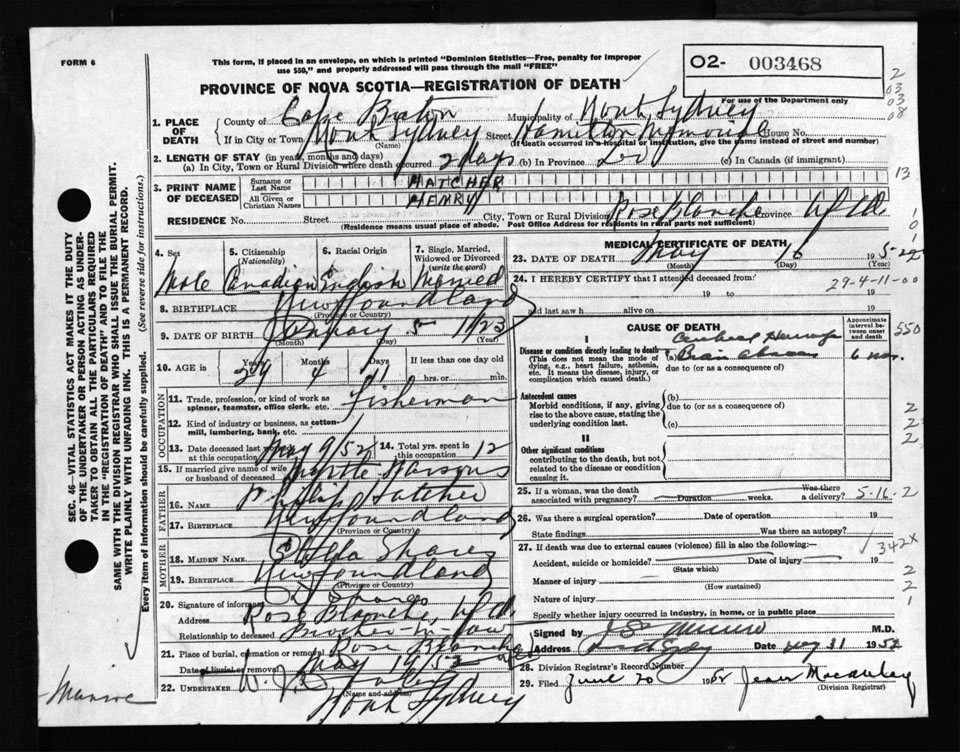 FORM 6
This form, if placed in an envelope, on which is printed "Dominion Statistics—Free, penalty for improper
use $50," and properly addressed will pass through the mail "FREE"
O2- 003468
For use of the Department only
PROVINCE OF NOVA SCOTIA—REGISTRATION OF DEATH
2
03
03
08
1. PLACE OF DEATH
County of Cape Breton Municipality of North Sydney
If in City or Town North Sydney Street Hamilton Memorial House No.
(Name) (If death occurred in a hospital or institution, give the name instead of street and number)
2. LENGTH OF STAY (in years, months and days)
(a) In City, Town or Rural Division where death occurred 2 days (b) In Province Do (c) In Canada (if immigrant)
13
3. PRINT NAME OF DECEASED
Surname or Last Name HATCHER
All Given or Christian Names HENRY
RESIDENCE No. Street City, Town or Rural Division Rose Blanche Province Nfld
(Residence means usual place of abode. Post Office Address for residents in rural parts not sufficient)
1
0
1
4. Sex Male
5. Citizenship (Nationality) Canadian
6. Racial Origin English
7. Single, Married, Widowed or Divorced (write the word) Married
8. BIRTHPLACE Newfoundland
(Province or Country)
9. DATE OF BIRTH January 5 1923
(Month) (Day) (Year)
10. AGE in Years 29 Months 4 Days 11 If less than one day old
hrs. or min.
OCCUPATION
11. Trade, profession, or kind of work as
spinner, teamster, office clerk, etc. Fisherman
12. Kind of industry or business, as cotton-
mill, lumbering, bank, etc.
13. Date deceased last worked at this occupation May 9/52 14. Total yrs. spent in this occupation 12
15. If married give name of wife
or husband of deceased Myrtle Parsons
FATHER
16. NAME Philip Hatcher
17. BIRTHPLACE Newfoundland
(Province or Country)
MOTHER
18. MAIDEN NAME
19. BIRTHPLACE Newfoundland
(Province or Country)
20. Signature of informant
Address Rose Blanche, Nfld.
Relationship to deceased Brother-in-law
21. Place of burial, cremation or removal Rose Blanche
Date of burial or removal May 19/52
22. UNDERTAKER
(Name and address)
North Sydney
MEDICAL CERTIFICATE OF DEATH
23. DATE OF DEATH May 16 1952
(Month) (Day) (Year)
24. I HEREBY CERTIFY that I attended deceased from:
19 to 19
and last saw h alive on 19
29-4-11-00
CAUSE OF DEATH
Approximate interval between onset and death
I
Disease or condition directly leading to death
(This does not mean the mode of
dying, e.g., heart failure, asthenia,
etc. It means the disease, injury, or
complication which caused death.)
Cerebral
(a) Brain Abscess 6 mos.
due to (or as a consequence of)
550
Antecedent causes
Morbid conditions, if any, giving
rise to the above cause, stating the
underlying condition last.
(b)
due to (or as a consequence of)
(c)
2
2
2
II
Other significant conditions
contributing to the death, but not
related to the disease or condition
causing it.
25. If a woman, was the death
associated with pregnancy? Duration weeks. Was there a delivery?
5-16-2
26. Was there a surgical operation? Date of operation 19
State findings Was there an autopsy?
27. If death was due to external causes (violence) fill in also the following:—
342x
Accident, suicide or homicide? Date of injury 19
(State which)
Manner of injury
(How sustained)
Nature of injury
Specify whether injury occurred in industry, in home, or in public place
2
2
1
Signed by M.D.
Address Date May 31 1952
28. Division Registrar's Record Number
29. Filed June 20 1952 Jean Macaulay
(Division Registrar)
SEC. 46—VITAL STATISTICS ACT MAKES IT THE DUTY
OF THE UNDERTAKER OR PERSON ACTING AS UNDER-
TAKER TO OBTAIN ALL THE PARTICULARS REQUIRED
IN THE "REGISTRATION OF DEATH" AND TO FILE THE
SAME WITH THE DIVISION REGISTRAR WHO SHALL ISSUE THE BURIAL PERMIT.
WRITE PLAINLY WITH UNFADING INK. THIS IS A PERMANENT RECORD.
Every item of information should be carefully supplied. (See reverse side for instructions.)
Munroe